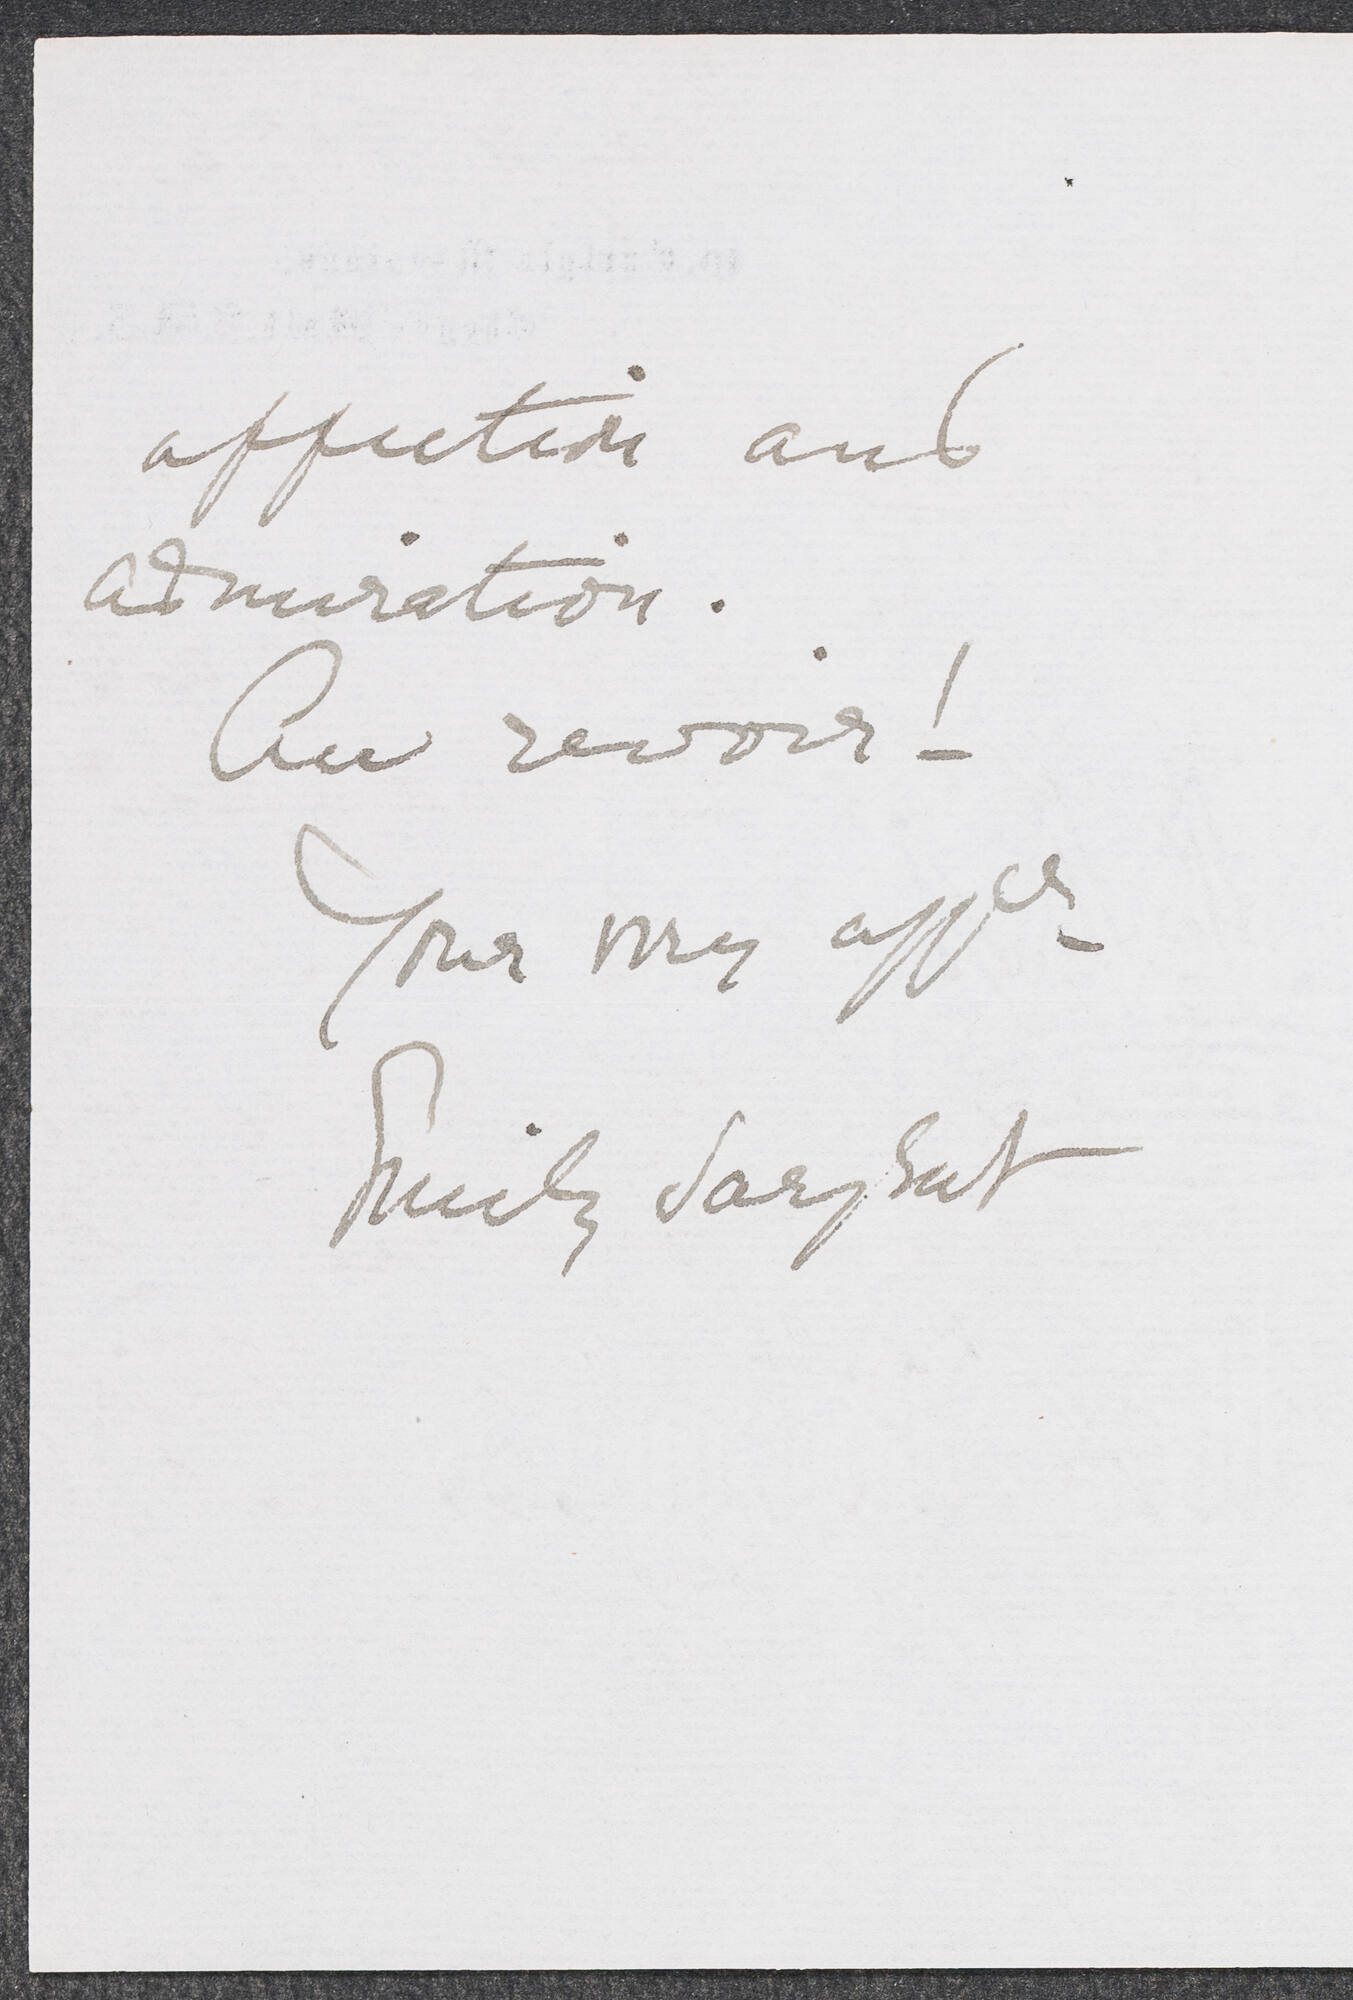 affection and
admiration.
Au revoir!
Your very affte
Emily Sargent